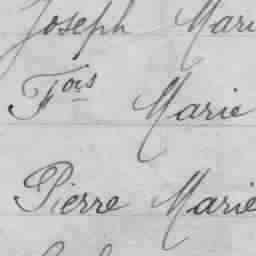 Joseph Mari
Fois Marie
Pierre Marie